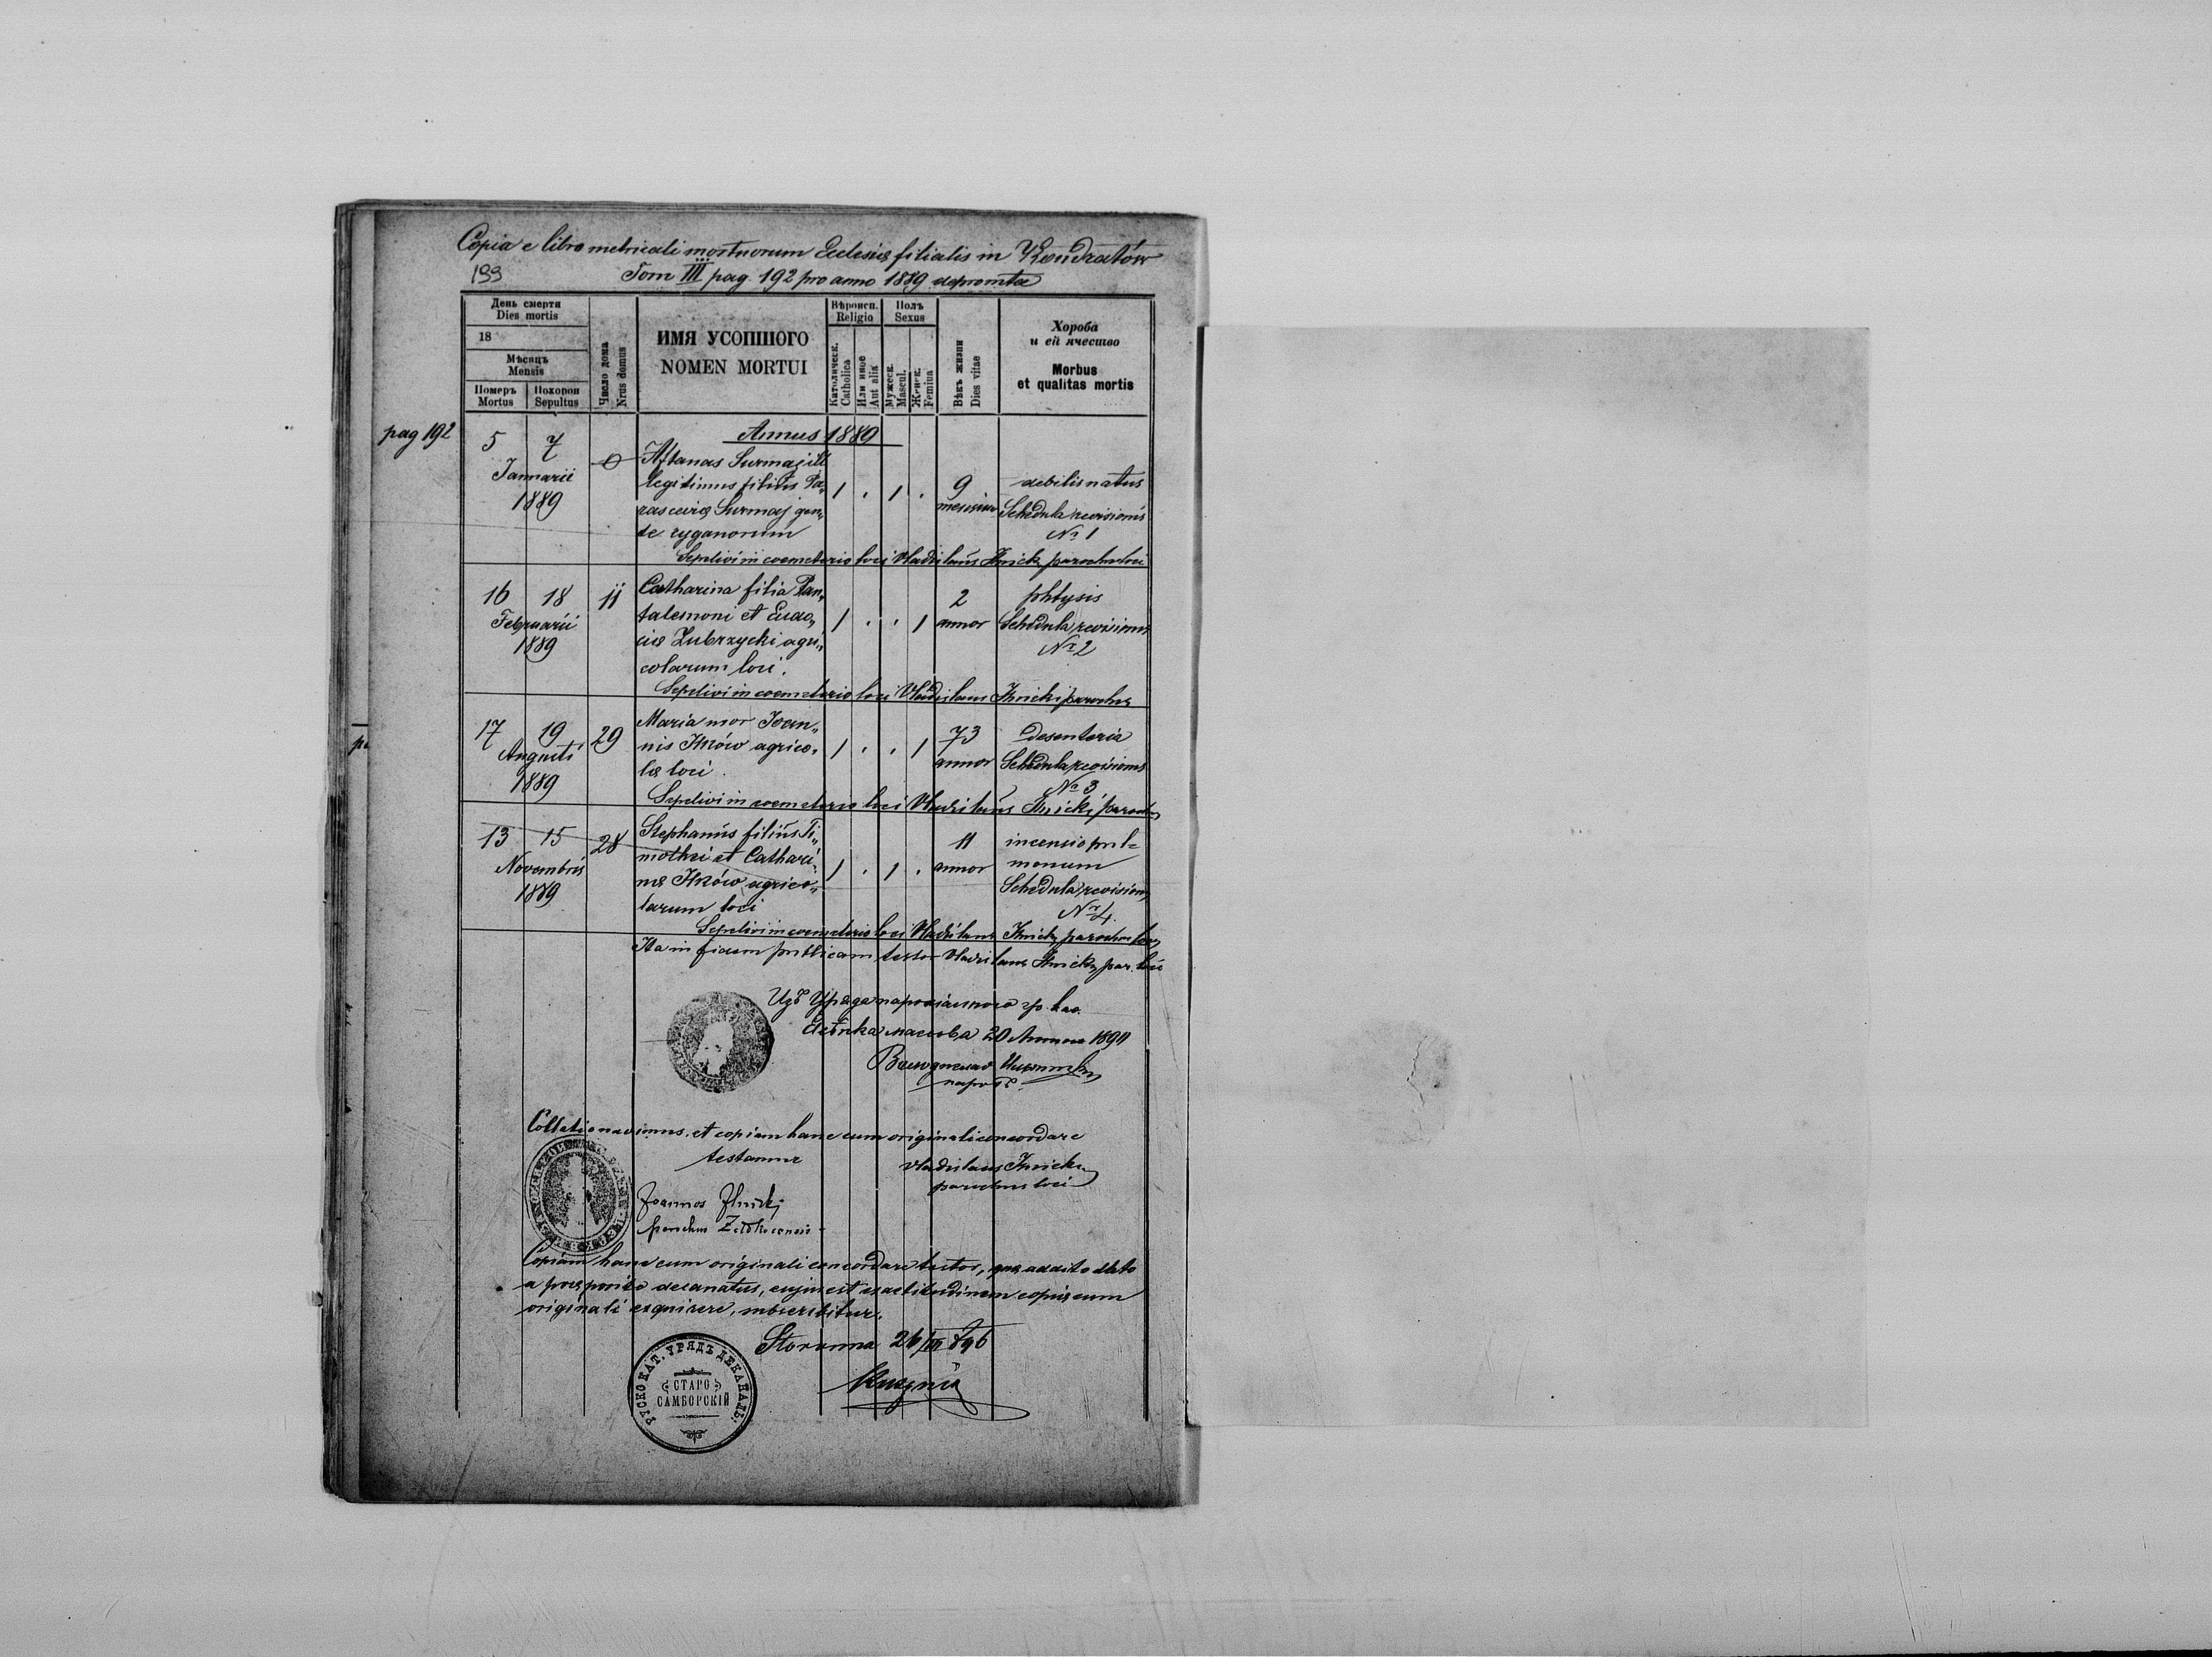 Copia e libro metricali mortuorum Ecclesiæ filialis in Kondratów
193
Tom III pag. 192 pro anno 1889 depromta
День смерти
Dies mortis
18
Мѣсяцъ
Mensis
Померъ
Mortus
Похорон
Sepultus
Число дома
Nrus domus
ИМЯ УСОПШОГО
NOMEN MORTUI
Вѣроисп.
Religio
Католическ.
Catholica
Или иное
Aut alia
Полъ
Sexus
Мужеск.
Mascul.
Женск.
Femina
Вѣкъ жизни
Dies vitae
Хороба
и ей ячество
Morbus
et qualitas mortis
pag 192
Annus 1889
5 7
Januarii
1889
0
Aftanas Surmaj ill
legitimus filius Pa„
rasceviæ Surmaj gen„
te cyganorum
1 . 1 .
9
mensium
debilis natus
Schedula revisionis
Nr 1
Sepelivi in coemeterio loci Vladislaus Ilnicky parochus loci
16 18
Februarii
1889
11
Catharina filia Pan„
talemoni et Eudo„
ciæ Zubrzycki agri„
colarum loci.
1 . . 1
2
annor
phtysis
Schedula revisionis
Nr 2
Sepelivi in coemeterio loci Vladislaus Ilnicki parochus
17 19
Augusti
1889
29
Maria uxor Joan„
nis Ilków agrico„
læ loci.
1 . . 1
73
annor
desenteria
Schedula revisionis
Nr 3
Sepelivi in coemeterio loci Vladislaus Ilnicki paroch
13 15
Novembris
1889
28
Stephanus filius Ti„
mothei et Cathari„
næ Ilków agrico„
larum loci
1 . 1 .
11
annor
incensio pul=
monum
Schedula revisionis
Nr 4.
Sepelivi in coemeterio loci Vladislaus Ilnicky parochus loci
Ita in fidem publicam testor Vladislaus Ilnicky par. loci
Изъ Уряда парохіального гр. кат.
20 1890
Collationavimus et copiam hanc cum originali concordare
testamur
Vladislaus Ilnicky
parochus loci
Joannes Ilnicki
parochus
Copiam hanc cum originali concordare testor, quæ addito dato
a præposito decanatus, cujus est exactitudinem copiæ cum
originali exquirere, subscribitur.
Storonna 26/III 896
РУСКО КАТ. УРЯДЪ ДЕКАНАЛЬ.
СТАРО
САМБОРСКІЙ